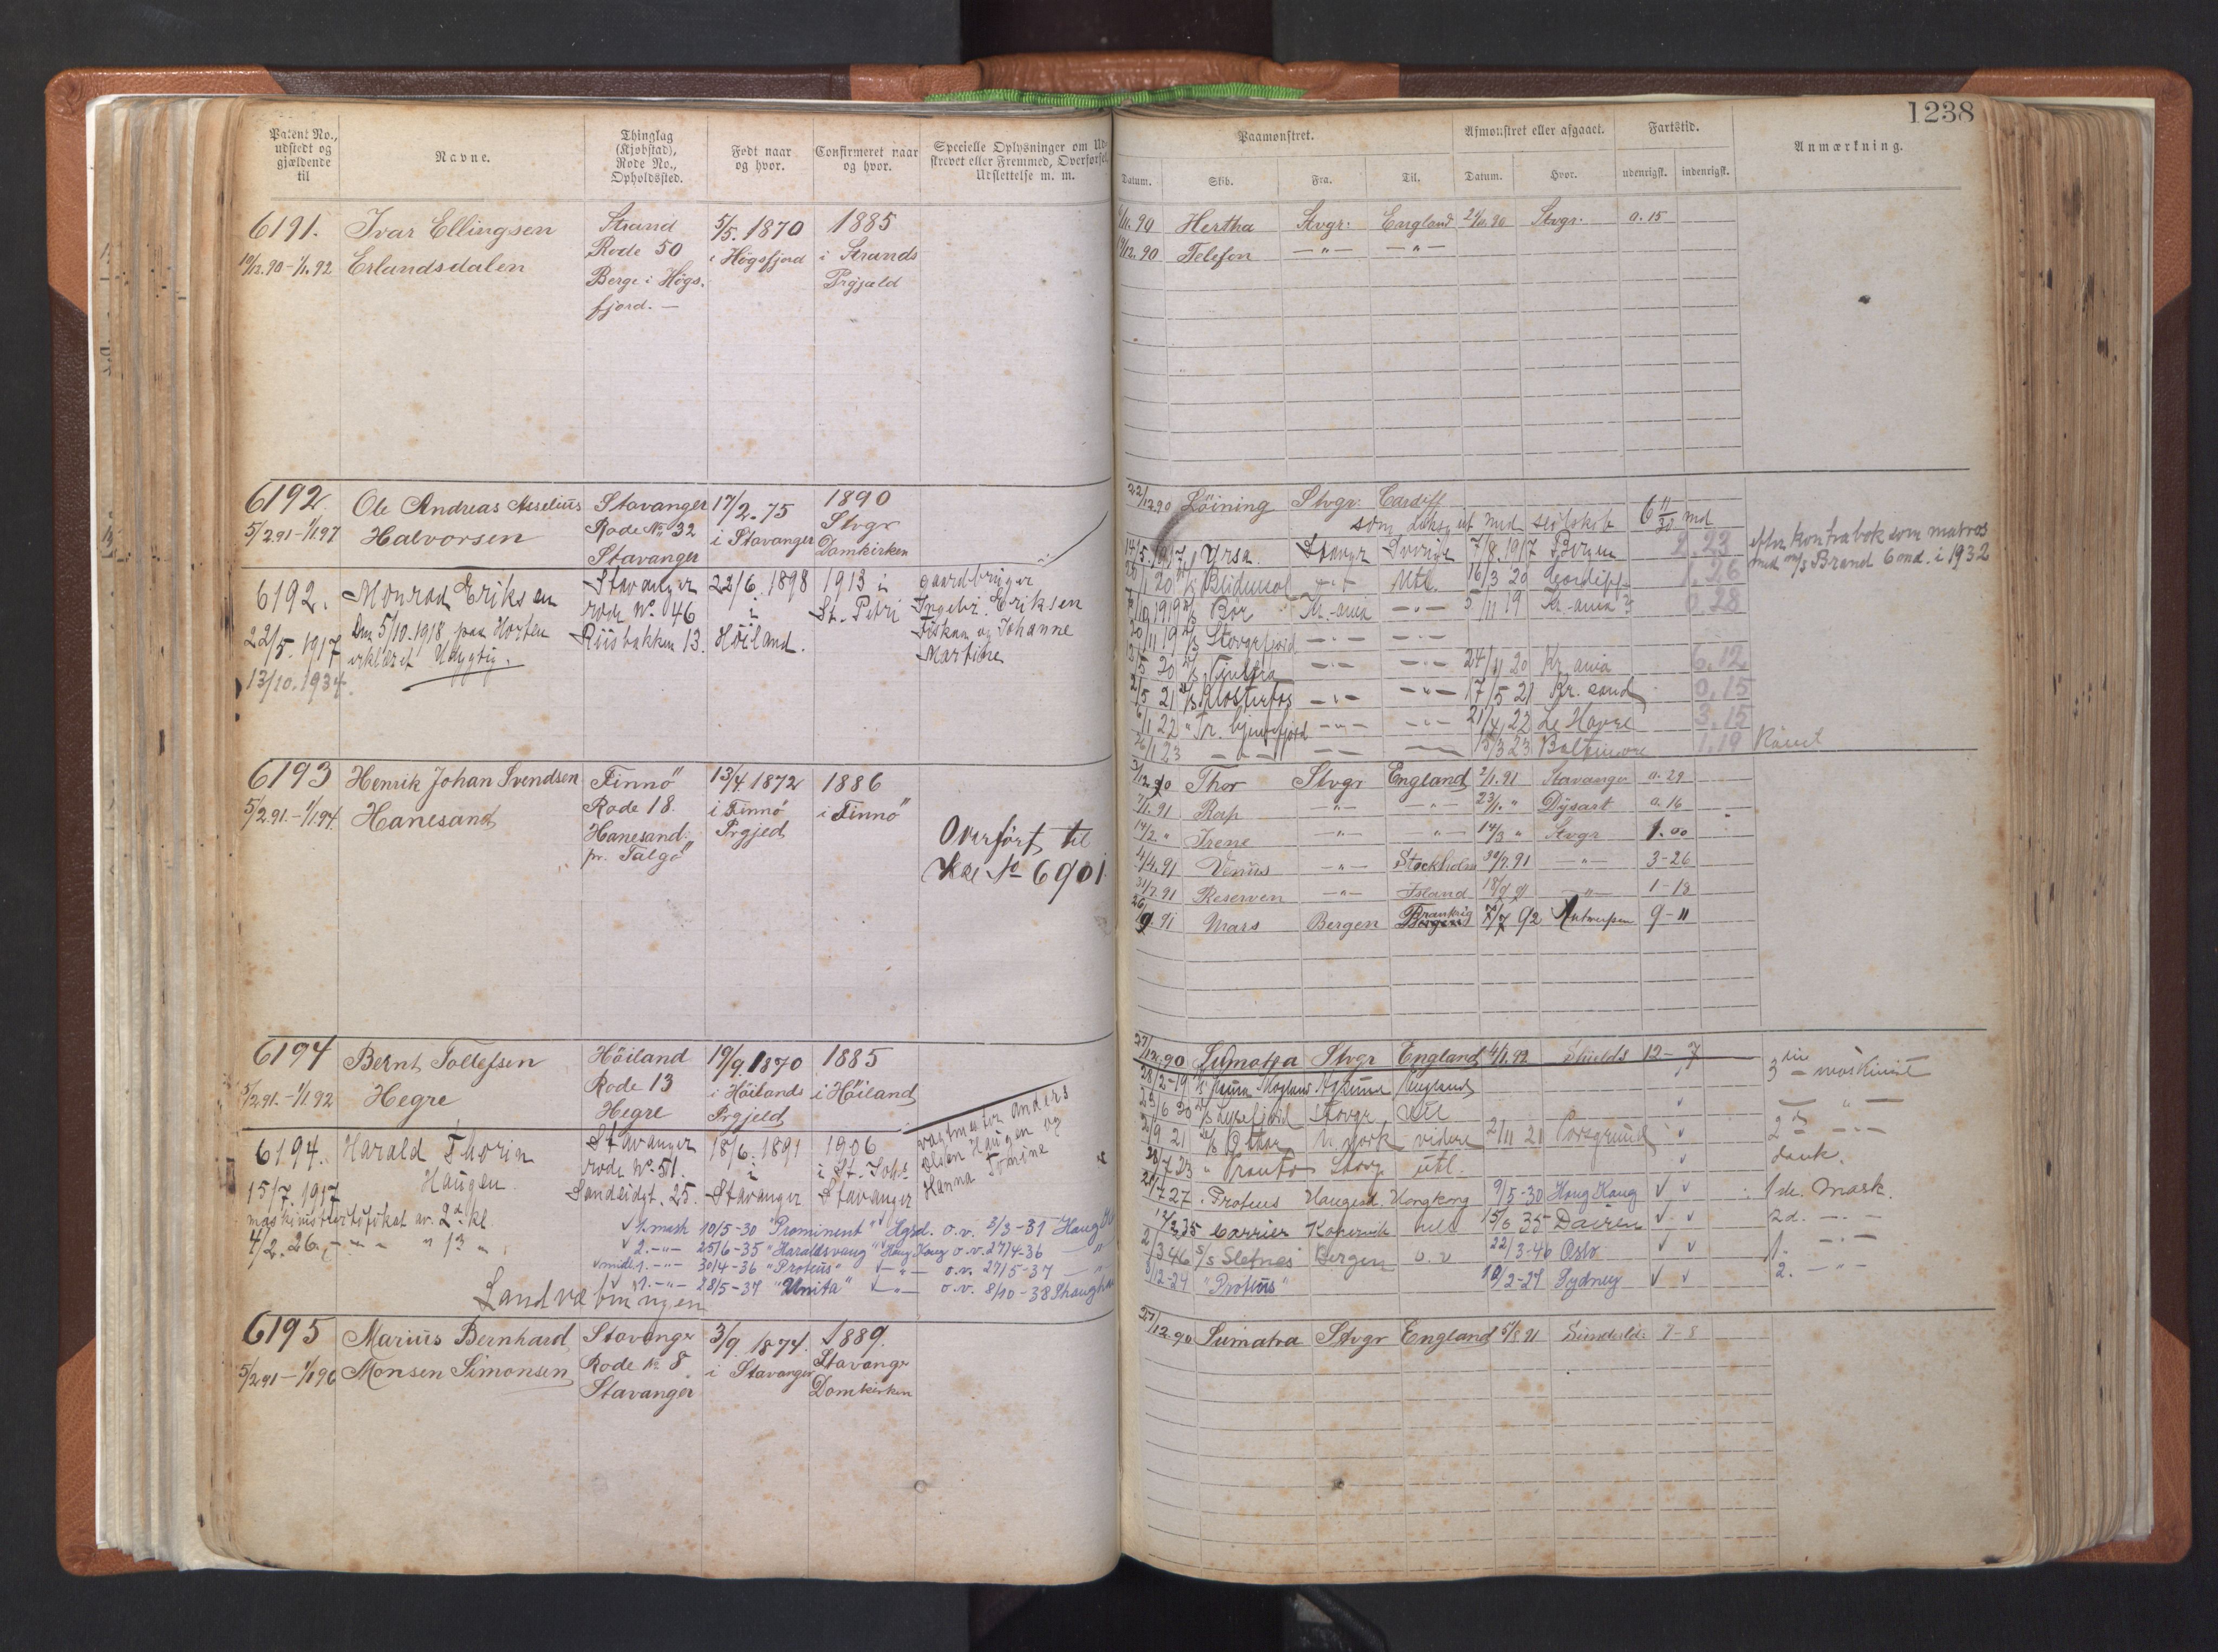 1238
Patent No., udstedt og gjældende til
Navne.
Thinglag (Kjøbstad), Rode No., Opholdssted.
Født naar og hvor.
Confirmeret naar og hvor.
Specielle Oplysninger om Ud-
skrevet eller Fremmed, Overførsel,
Udslettelse m. m.
Paamønstret.
Afmønstret eller afgaaet.
Fartstid.
Anmærkning.
Datum. Skib. Fra. Til. Datum. Hvor. udenrigsk. indenrigsk.
6191. Ivar Ellingsen Strand 5/5. 1870 1885
10/12.90-1/1.92 Erlandsdalen Rode 50 i Högsfjord i Strands
Berge i Högs- Prgjæld
fjord. —
/11.90 Hertha Stvgr: England 2/11.90 Stvgr. 0.15
/12.90 Telefon —"— —"—
6192 Ole Andreas Asseliüs Stavanger 17/2.75 1890
5/2.91-1/1.97 Halvorsen Rode No 32 i Stavanger Stvgr
Stavanger Domkirken
22/12.90 Löining Stvgr. Cardiff
6 11/30 md
6192. Monrad Eriksen Stavanger 22/6. 1898 1913 i gaardbringer
22/5. 1917 Den 5/10.1918 paa Horten rode No. 46 i St. Petri Ingebr. Eriksen
erklæret Udygtig. Riisbakken 13. Höiland. Fiskaa og Johanne
13/10.1934. Martine
14/5.1917 Yrsa. Stavgr Sverige 7/8.1917 Bergen 2.23
efter kontrabok som matros
med m/s Brand 6 md. i 1932
—"— Utl. 16/3 20 Cardiff 1.26
Bor Kr.ania —"— 5/11 19 Kr.ania 0.28
Stavgrfjord —"— —"—
2/5 20 —"— —"— 24/11 20 Kr.ania 6.12
2/5 21 Klosterfos —"— —"— 17/5 21 Kr.sand 0.15
6/1 22 —"— —"— 21/4 22 Le Havre 3.15
26/1 23 —"— 15/3 23 Baltimore 1.19 Rømt
6193 Henrik Johan Svendsen Finnö 13/4.1872 1886
5/2.91.-1/1.94. Hanesand Rode 18. i Finnö i Finnö
Hanesand. Prgjed
pr. Talgö
Overført til
Hoe No 6901.
3/12.90 Thor Stvgr England 2/1.91 Stavanger 0.29
7/1.91 Rap —"— —"— 23/1. " Dysart 0.16
14/2. " Irene —"— " 14/3 " Stvgr 1.00
4/4.91 Venüs —"— Stockholm 30/7.91 —"— 3-26
31/7.91 Reserven —"— Island 18/9 91 —"— 1-18
26/9.91 Mars Bergen Frankrig 7/7 92 Antwerpen 9-11
6194 Bernt Tollefsen Höiland 19/9.1870 1885
5/2.91.-1/1.92 Hegre Rode 13 i Höilands i Höiland
Hegre Prgjeld
27/12.90 Sumatra Stvgr England 4/1.92 Shields 12-7
6194. Harald Thorin Stavanger 18/6. 1891 1906 vagtmester Anders
15/7. 1917 Haügen. rode No. 51. i i St. Joh: Olsen Haugen og
Sandeidgt. 25. Stavanger Stavanger Hanna Tomine
maskinistsertifikat av 2d. kl.
4/2.26. — " — " 1s "
√1. mask 10/5-30 "Prominent" Hgsd. o.v. 3/3-31 Haug
√2. —"— 25/6-35 "Haraldsvang" Hong Kong o.v. 27/4-36 — "
1. —"— 30/4-36 "Protëus" —"— o.v. 27/5-37 — "
√1. —"— 28/5-37 "Unita" —"— o.v. 8/10-38 Shanghai
28/2-19 England 3die maskinist
23/6 20 Lysefjord Stavgr Utl — " —
21/9 21 N. york videre 2/11 21 Porsgrund 2d — " —
28/7 23 Utl. donk.
21/7 27 . Proteus Haugesd. Hongkong 9/5-30 Hong Kong 1ste. Mask.
12/2 35 Carrier Kopervik Utl 15/6 35 Dairen 2d. —"—
2/3 46 S/S Sletnes Bergen o.v 22/3-46 Oslo 1. —"—
8/12-24 "Protëus" 10/2-27 Sydney 2. —"—
6195 Mariüs Bernhard Stavanger 3/9. 1874. 1889.
5/2.91-1/1.96 Monsen Simonsen Rode No 8 i Stavanger Stavanger
Stavanger Domkirken
27/12.90 Sumatra Stvgr England 5/8 91 Sunderld: 7-8